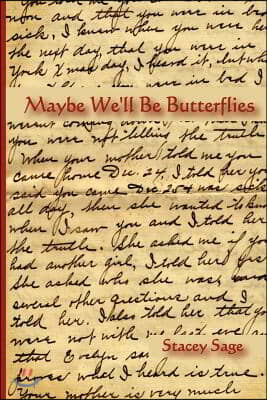 now and that you were in bed
sick, I knew when you were
the next day, that you were in
York Xmas day, I heard it, but
you were in bed I
Maybe We'll Be Butterflies
you were not telling the truth
When your mother told me you
came home Dec. 24, I told her you
said you came Dec 25 & was sick
all day, then she wanted to know
when I saw you and I told her
the truth. She asked me if you
had another girl, I told her yes
she asked who she was, and
several other questions and I
told her. I also told her that you
were not with me last eve and
that Evelyn
what I heard is true.
Your mother is very much
Stacey Sage